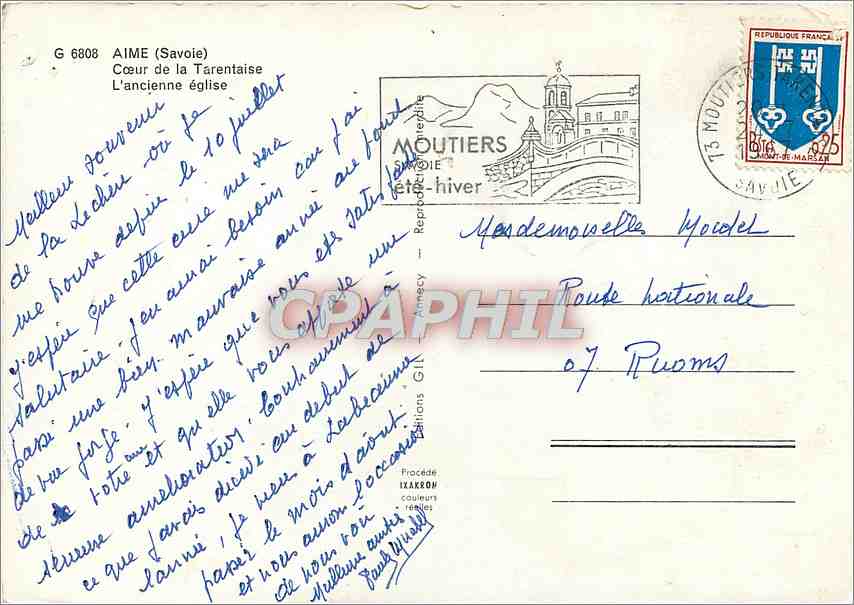 G 6808 AIME (Savoie)
Cœur de la Tarentaise
L'ancienne église
Meilleur souvenir
de La Léchère où je
me trouve depuis le 10 juillet
J'espère que cette cure me sera
salutaire. J'en avais besoin car j'ai
passé une bien mauvaise année au point
de vue gorge. J'espère que vous êtes satisfaite
de la votre et qu'elle vous apporte une
sérieuse amélioration. Contrairement à
ce que j'avais décidé au début de
l'année, je viens à
passer le mois d'août
et nous aurons l'occasion
de nous voir
Meilleures
Reproduction interdite
Editions GIL - Annecy -
Procédé
IXAKROM
couleurs
réelles
MOUTIERS
SAVOIE
été-hiver
73 MOUTIERS TARENTAISE
SAVOIE
REPUBLIQUE FRANÇAISE
0,25
MONT-DE-MARSAN
Mesdemoiselles
Route Nationale
07 Ruoms
CPAPHIL